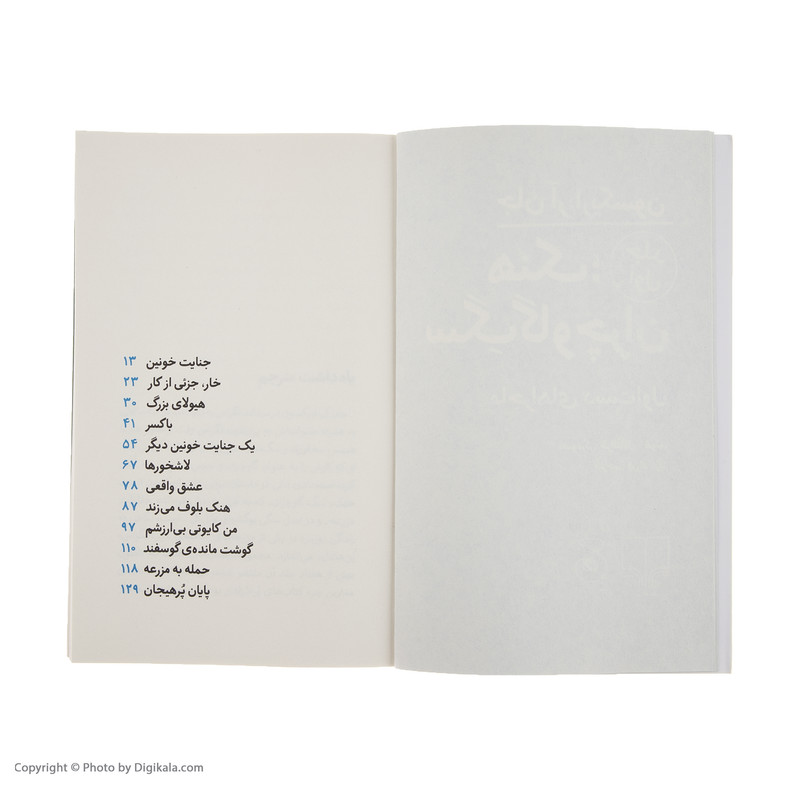 جنایت خونین ۱۳
خار، جزئی از کار ۲۳
هیولای بزرگ ۳۰
باکسر ۴۱
یک جنایت خونین دیگر ۵۴
لاشخورها ۶۷
عشق واقعی ۷۸
هنک بلوف می‌زند ۸۷
من کایوتی بی‌ارزشم ۹۷
گوشت مانده‌ی گوسفند ۱۱۰
حمله به مزرعه ۱۱۸
پایان پُرهیجان ۱۲۹
هنک:
سگ گاوچران
Copyright © Photo by Digikala.com